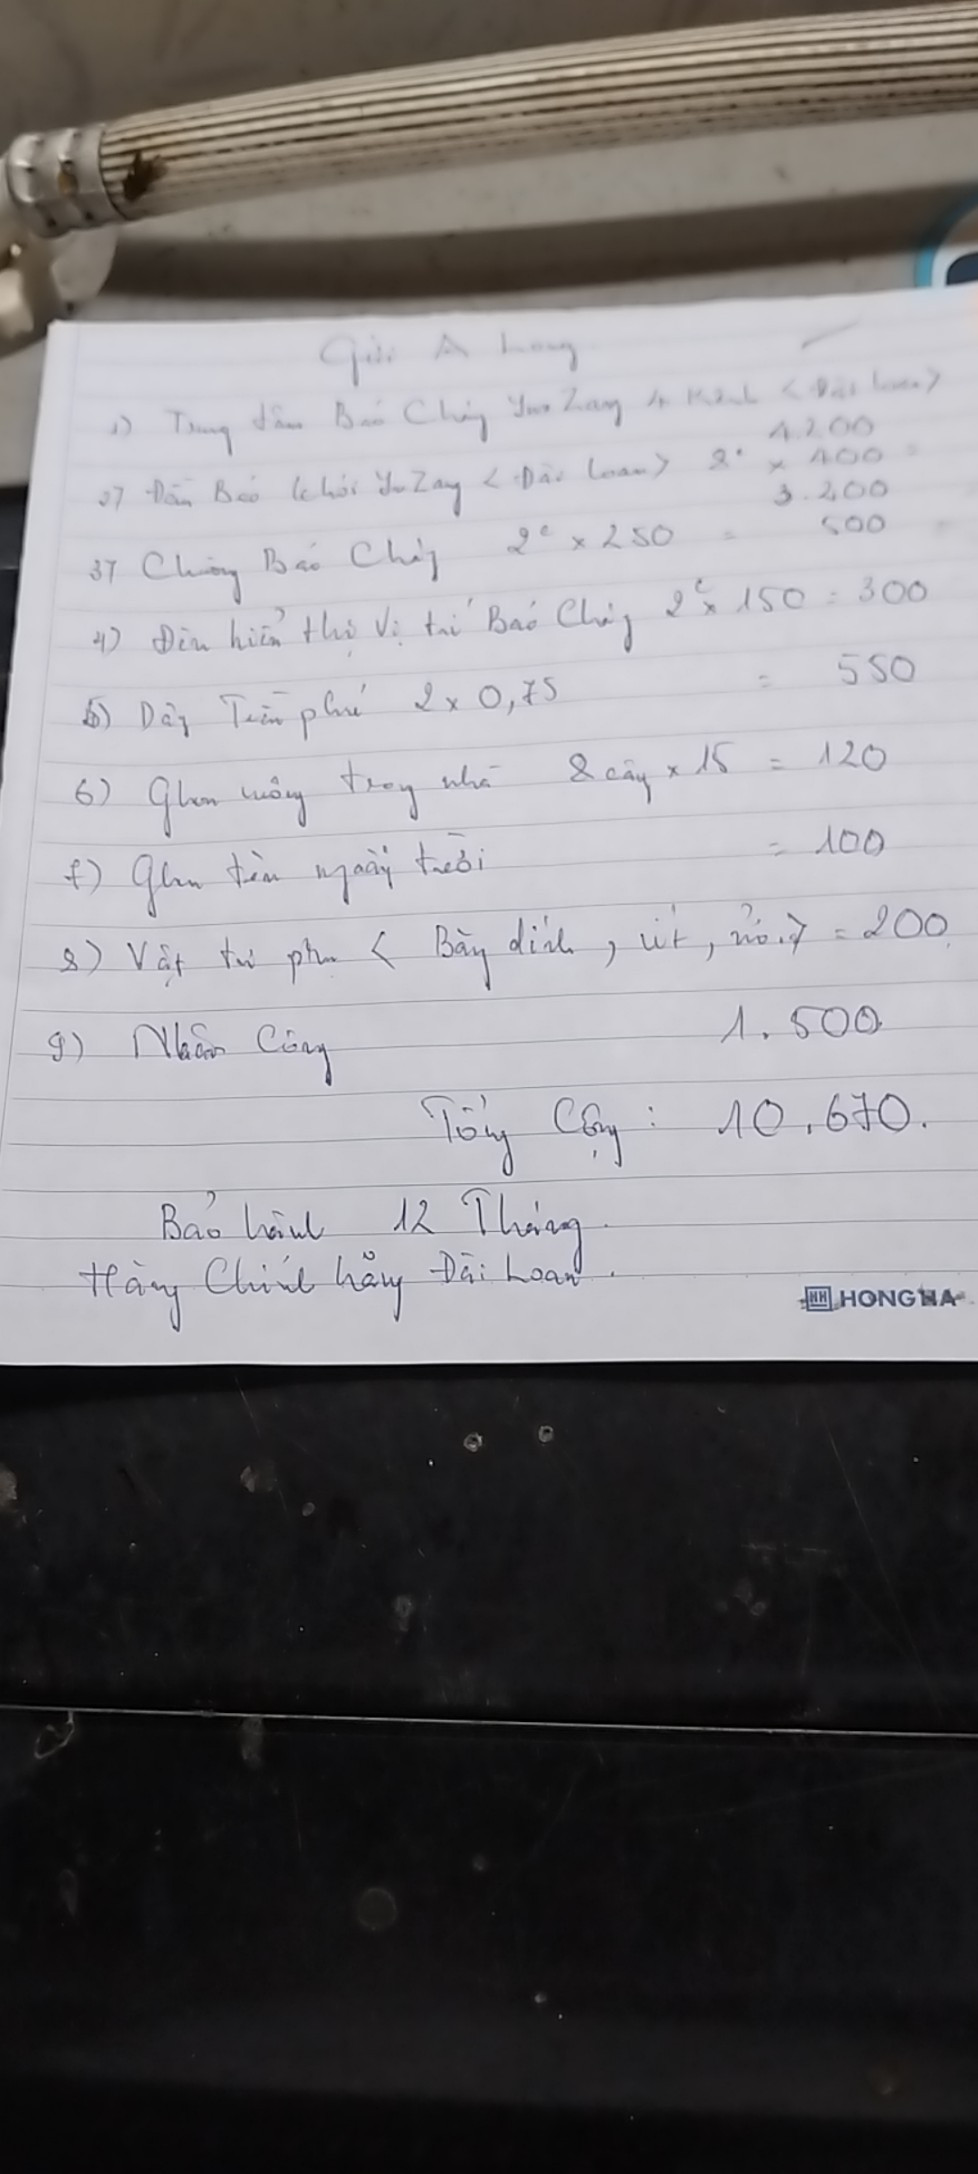 Gửi A Long
1) Trung tâm Báo Cháy YunYang 4 Kênh < Đài Loan >
4.200
2) Đầu Báo khói YunYang < Đài Loan > 8c x 400 =
3.200
3) Chuông Báo Cháy 2c x 250 = 500
4) Đèn hiển thị vị trí Báo Cháy 2c x 150 = 300
5) Dây Trần phú 2 x 0,75 = 550
6) Ghen vuông trong nhà 8 cây x 15 = 120
7) Ghen tròn ngoài trời = 100
8) Vật tư phụ < Băng dính, vít, nở.> = 200
9) Nhân Công 1.500
Tổng Cộng : 10.670.
Bảo hành 12 Tháng.
Hàng Chính hãng Đài Loan.
HONG HA